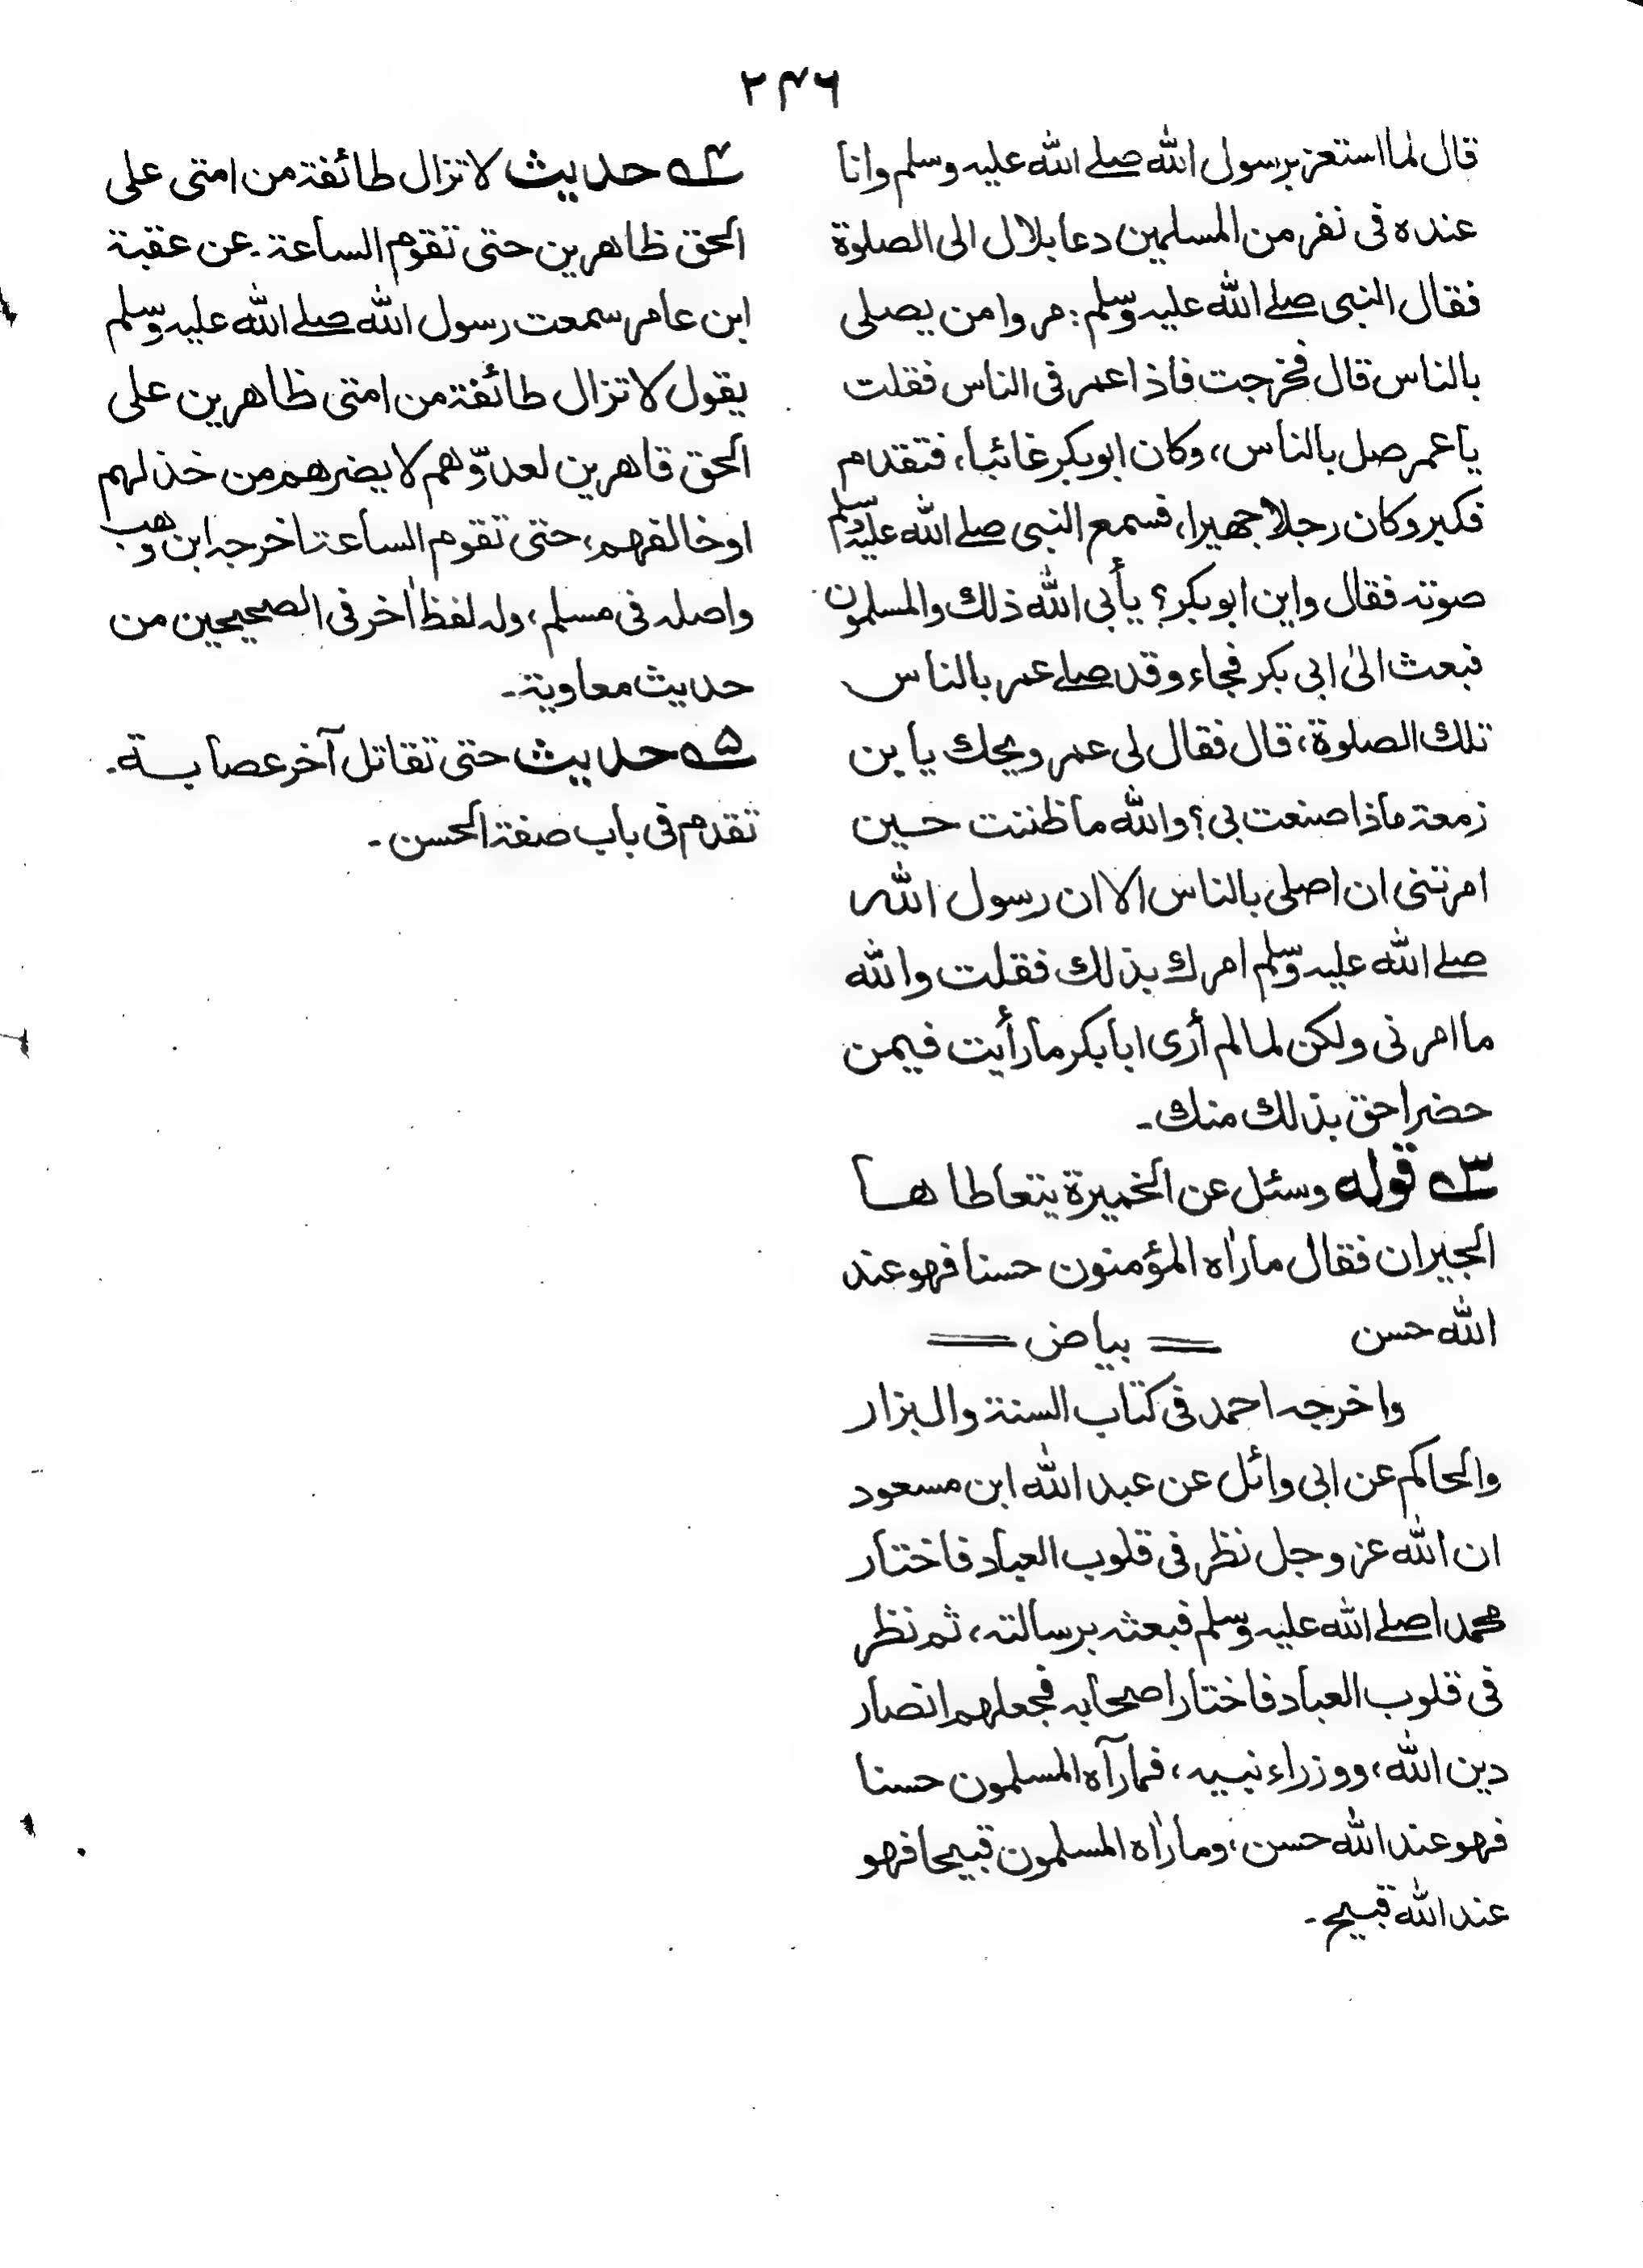 ۲۴۶
قال لما استعز برسول الله صلے الله عليه وسلم وانا
عنده فی نفر من المسلمين دعا بلال الى الصلوة
فقال النبی صلے الله عليه وسلم: مروا من يصلی
بالناس قال فخرجت فاذا عمر فی الناس فقلت
يا عمر صل بالناس، وكان ابوبكر غائبا، فتقدم
فكبر وكان رجلا جهيرا، فسمع النبی صلے الله عليه وسلم
صوته فقال واين ابوبكر؟ يأبی الله ذلك والمسلمون
فبعث الیٰ ابی بكر فجاء وقد صلے عمر بالناس
تلك الصلوة، قال فقال لی عمر ويحك يا بن
زمعة ماذا صنعت بی؟ والله ما ظننت حين
امرتنی ان اصلی بالناس الا ان رسول الله
صلے الله عليه وسلم امرك بذلك فقلت والله
ما امرنی ولكن لما لم أرى ابا بكر ما رأيت فيمن
حضر احق بذلك منك ۔
۳ه قوله وسئل عن الخميرة يتعاطاها
الجيران فقال ما راٰه المؤمنون حسنا فهو عند
الله حسن == بياض ==
واخرجه احمد فی كتاب السنة والبزار
والحاكم عن ابی وائل عن عبد الله ابن مسعود
ان الله عز وجل نظر فی قلوب العباد فاختار
محمدا صلے الله عليه وسلم فبعثه برسالته، ثم نظر
فی قلوب العباد فاختار اصحابه فجعلهم انصار
دين الله، ووزراء نبيه، فما رآه المسلمون حسنا
فهو عند الله حسن، وما راٰه المسلمون قبيحا فهو
عند الله قبيح ۔
۴ه حديث لا تزال طائفة من امتی علی
الحق ظاهرين حتی تقوم الساعة ۔ عن عقبة
ابن عامر سمعت رسول الله صلے الله عليه وسلم
يقول لا تزال طائفة من امتی ظاهرين علی
الحق قاهرين لعدوّهم لا يضرهم من خذلهم
اوخالفهم، حتی تقوم الساعة اخرجه ابن وهب
واصله فی مسلم، وله لفظ اٰخر فی الصحيحين من
حديث معاوية ۔
۵ه حديث حتی تقاتل آخر عصابة ۔
تقدم فی باب صفة الحسن ۔